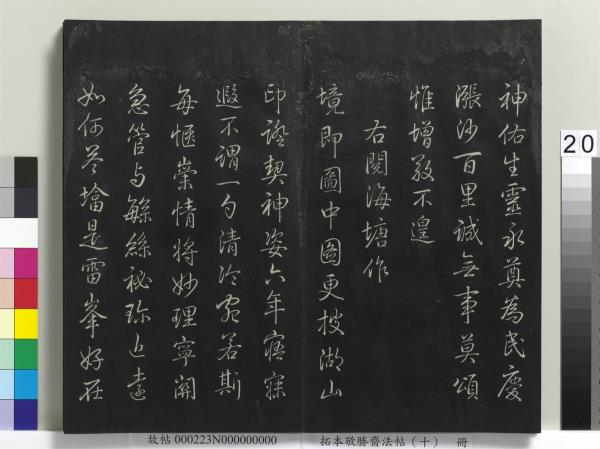 神佑生靈永奠為民慶
漲沙百里誠無事莫頌
惟增敬不遑
右閱海塘作
境即圖中圖更披湖山
印證契神姿六年寤寐
遐不謂一句清泠宛若斯
每愜崇情將妙理寧關
急管与繁絲祕珍近遠
如何答墖是雷峯好在
20
故帖 000223N000000000
拓本敬勝齋法帖(十) 冊